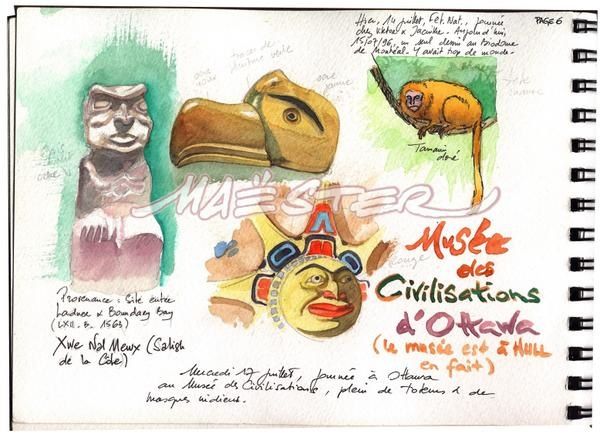 Hier, 14 juillet, Fêt. Nat., journée
chez Victor & Jacinthe. Aujourd'hui,
15/07/96, un seul dessin au Biodôme
de Montréal. Y avait trop de monde.
PAGE 6
traces de
peinture verte
Tamarin
doré
MAËSTER
rouge
Musée
des
Civilisations
d'Ottawa
(le musée est à HULL
en fait)
Provenance : Site entre
Ladner & Boundary Bay
(LXII. B. 1563)
Xwe Nal Mewx (Salish
de la Côte)
Mercredi 17 juillet, journée à Ottawa
au Musée des Civilisations, plein de totems & de
masques indiens.